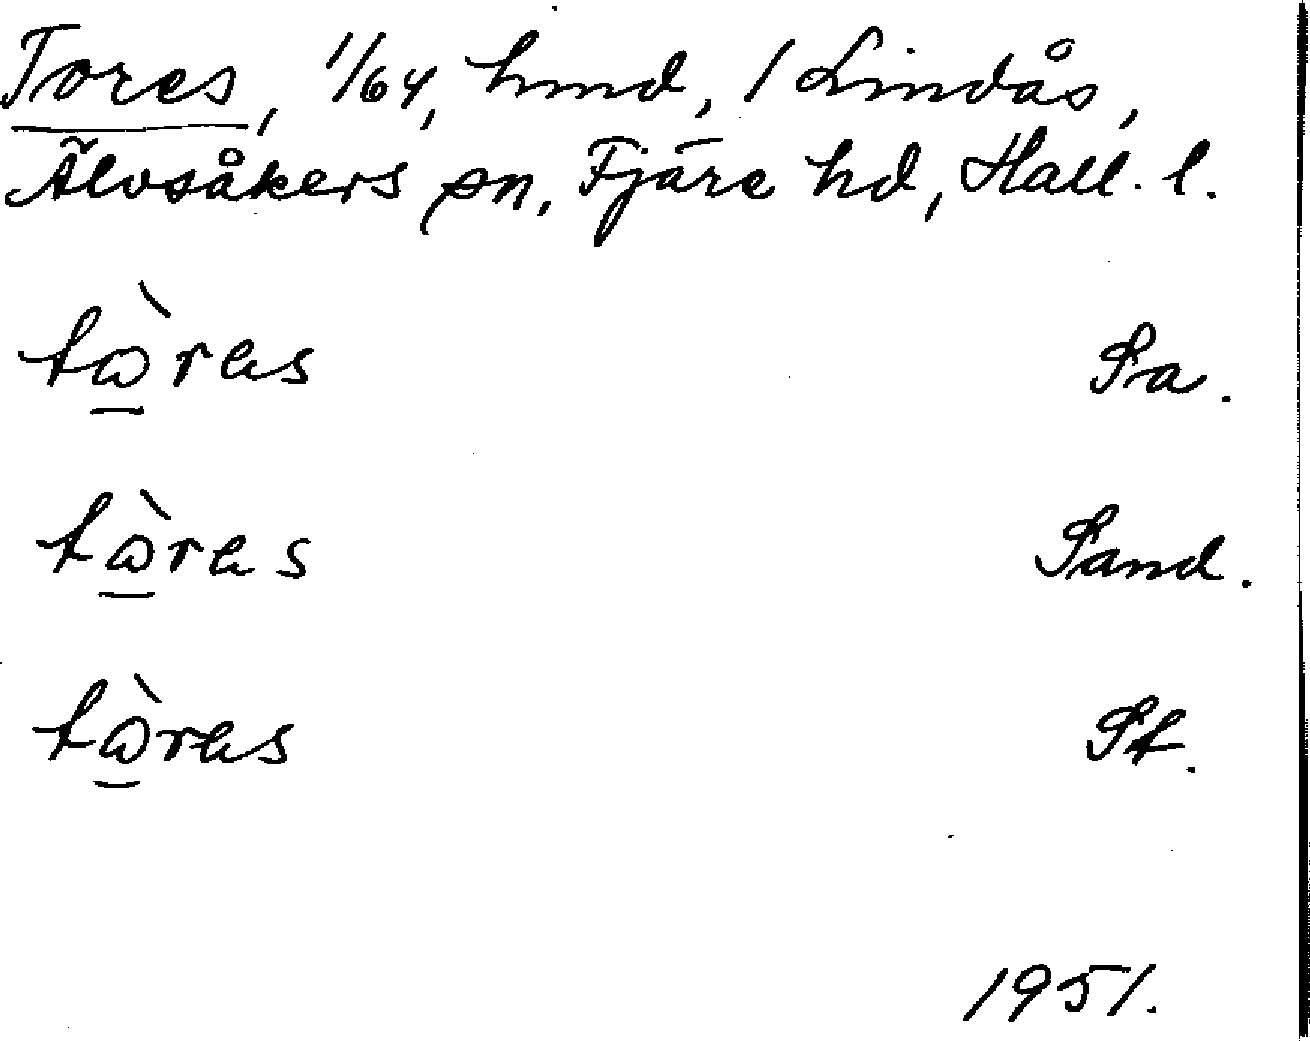 Tores, 1/64, hmd, 1 Lindås,
Älvsåkers sn, Fjäre hd, Hall. l.
tὼ̲ras Sa.
tὼ̲ras Sand.
tὼ̲ras St.
1951.